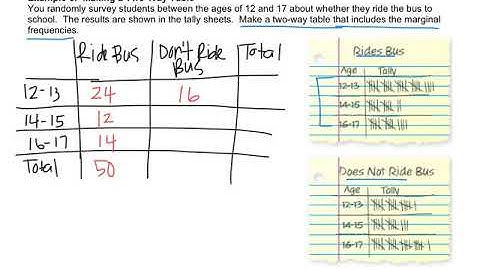 You randomly survey students between the ages of 12 and 17 about whether they ride the bus to
school. The results are shown in the tally sheets. Make a two-way table that includes the marginal
frequencies.
Ride Bus Don't Ride Bus Total
12-13 24 16
14-15 12
16-17 14
Total 50
Rides Bus
Age Tally
12-13
14-15
16-17
Does Not Ride Bus
Age Tally
12-13
14-15
16-17